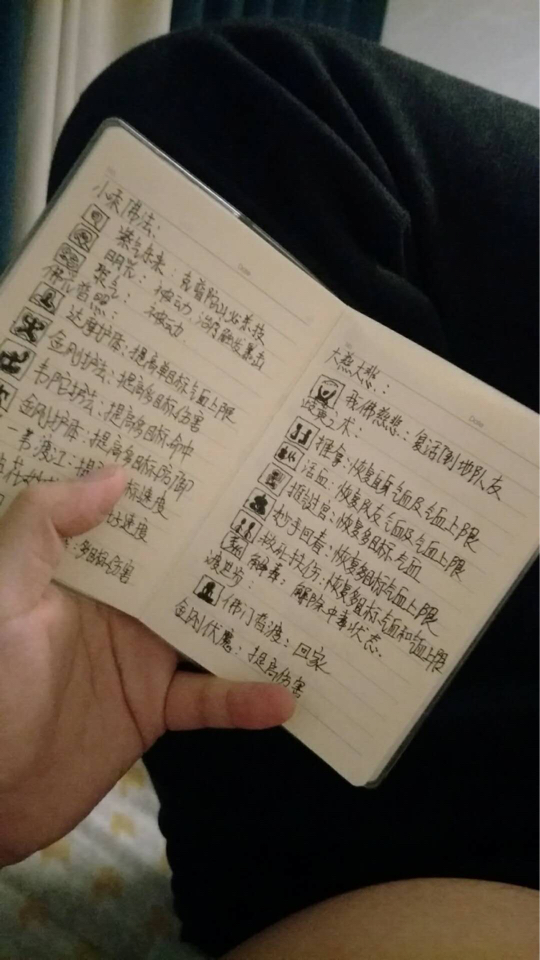 小乘佛法:
紫气东来:
明芯:被动
聚气:被动
佛光普照:
达摩护体:提高单目标气血上限
金刚护法:提高多目标伤害
韦陀护法:提高多目标命中
金刚护体:提高多目标防御
一苇渡江:提高多目标速度
多目标伤害
大慈大悲:
我佛慈悲:复活倒地队友
推拿:恢复队友气血及气血上限
活血:恢复队友气血及气血上限
推气过宫:恢复多目标气血
妙手回春:恢复多目标气血上限
救死扶伤:恢复多目标气血和气血上限
解毒:解除中毒状态
渡世步
佛门普渡:回家
金刚伏魔:提高伤害